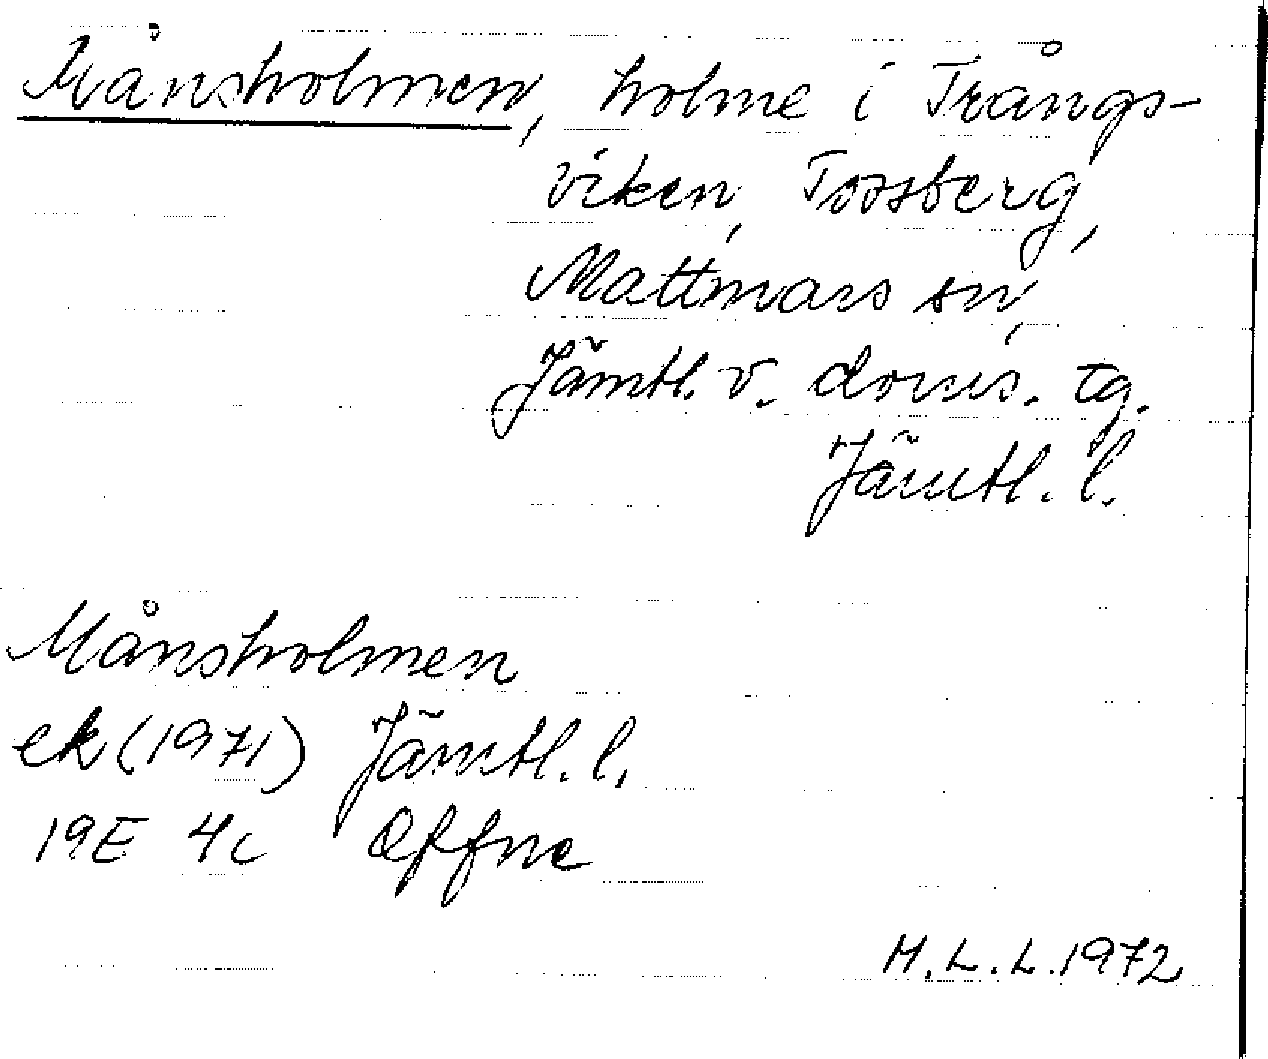 Månsholmen, holme i Trångs-
viken, Tossberg,
Mattmars sn,
Jämtl. v. doms. tg.
Jämtl. l.
Månsholmen
ek (1971) Jämtl. l.
19E 4c Offne
H.L.L. 1972